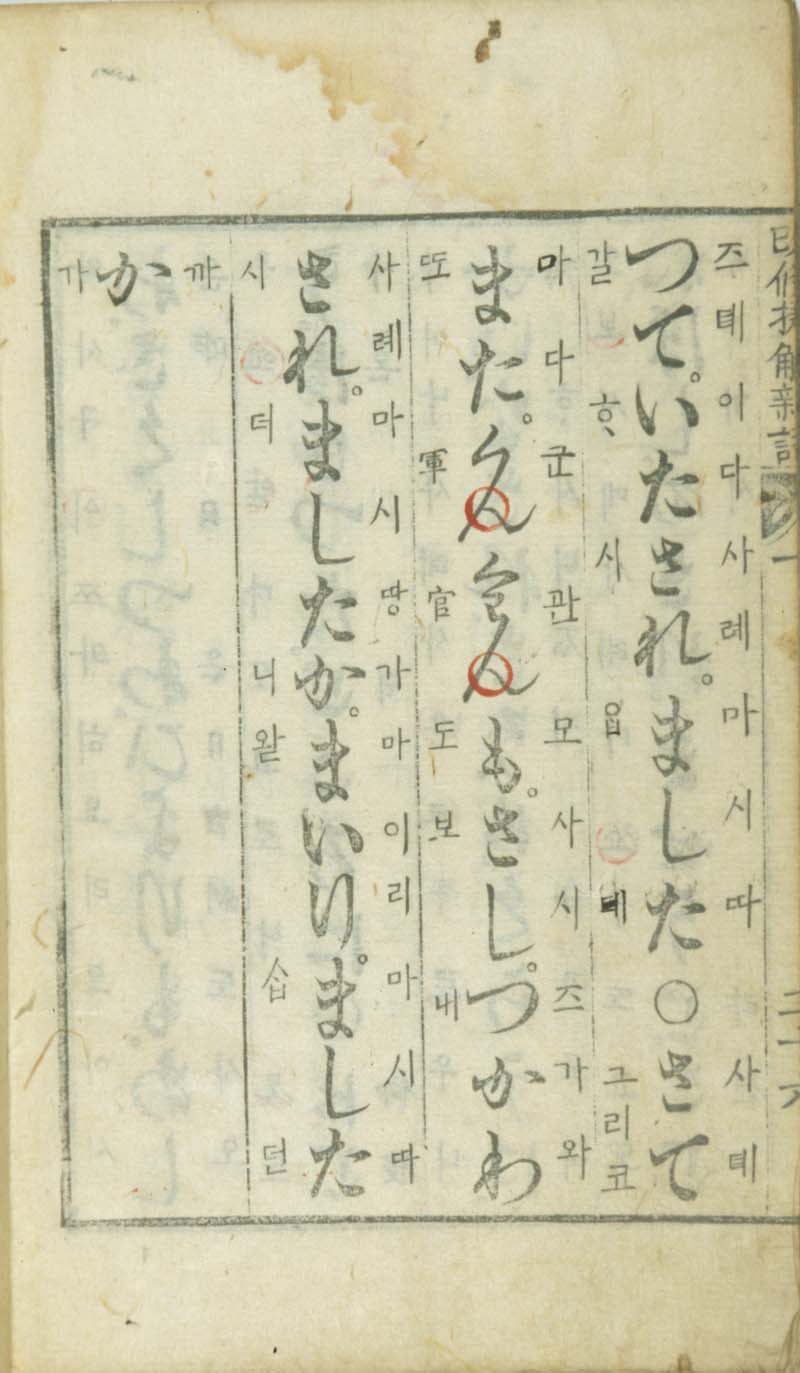 改修捷解新語 一 二十六
즈톄이다사례마시따 사톄
つて。いたされ。ました○さて
갈 ᄒᆞ시읍데 그리코
마다군관모사시즈가와
また。くんくわんも。さし。つかわ
또 軍官도 보내
사례마시땅가마이리마시따
され。ましたか。まいり。ました
시더니 왇ᄉᆞᆸ던
까
か
가